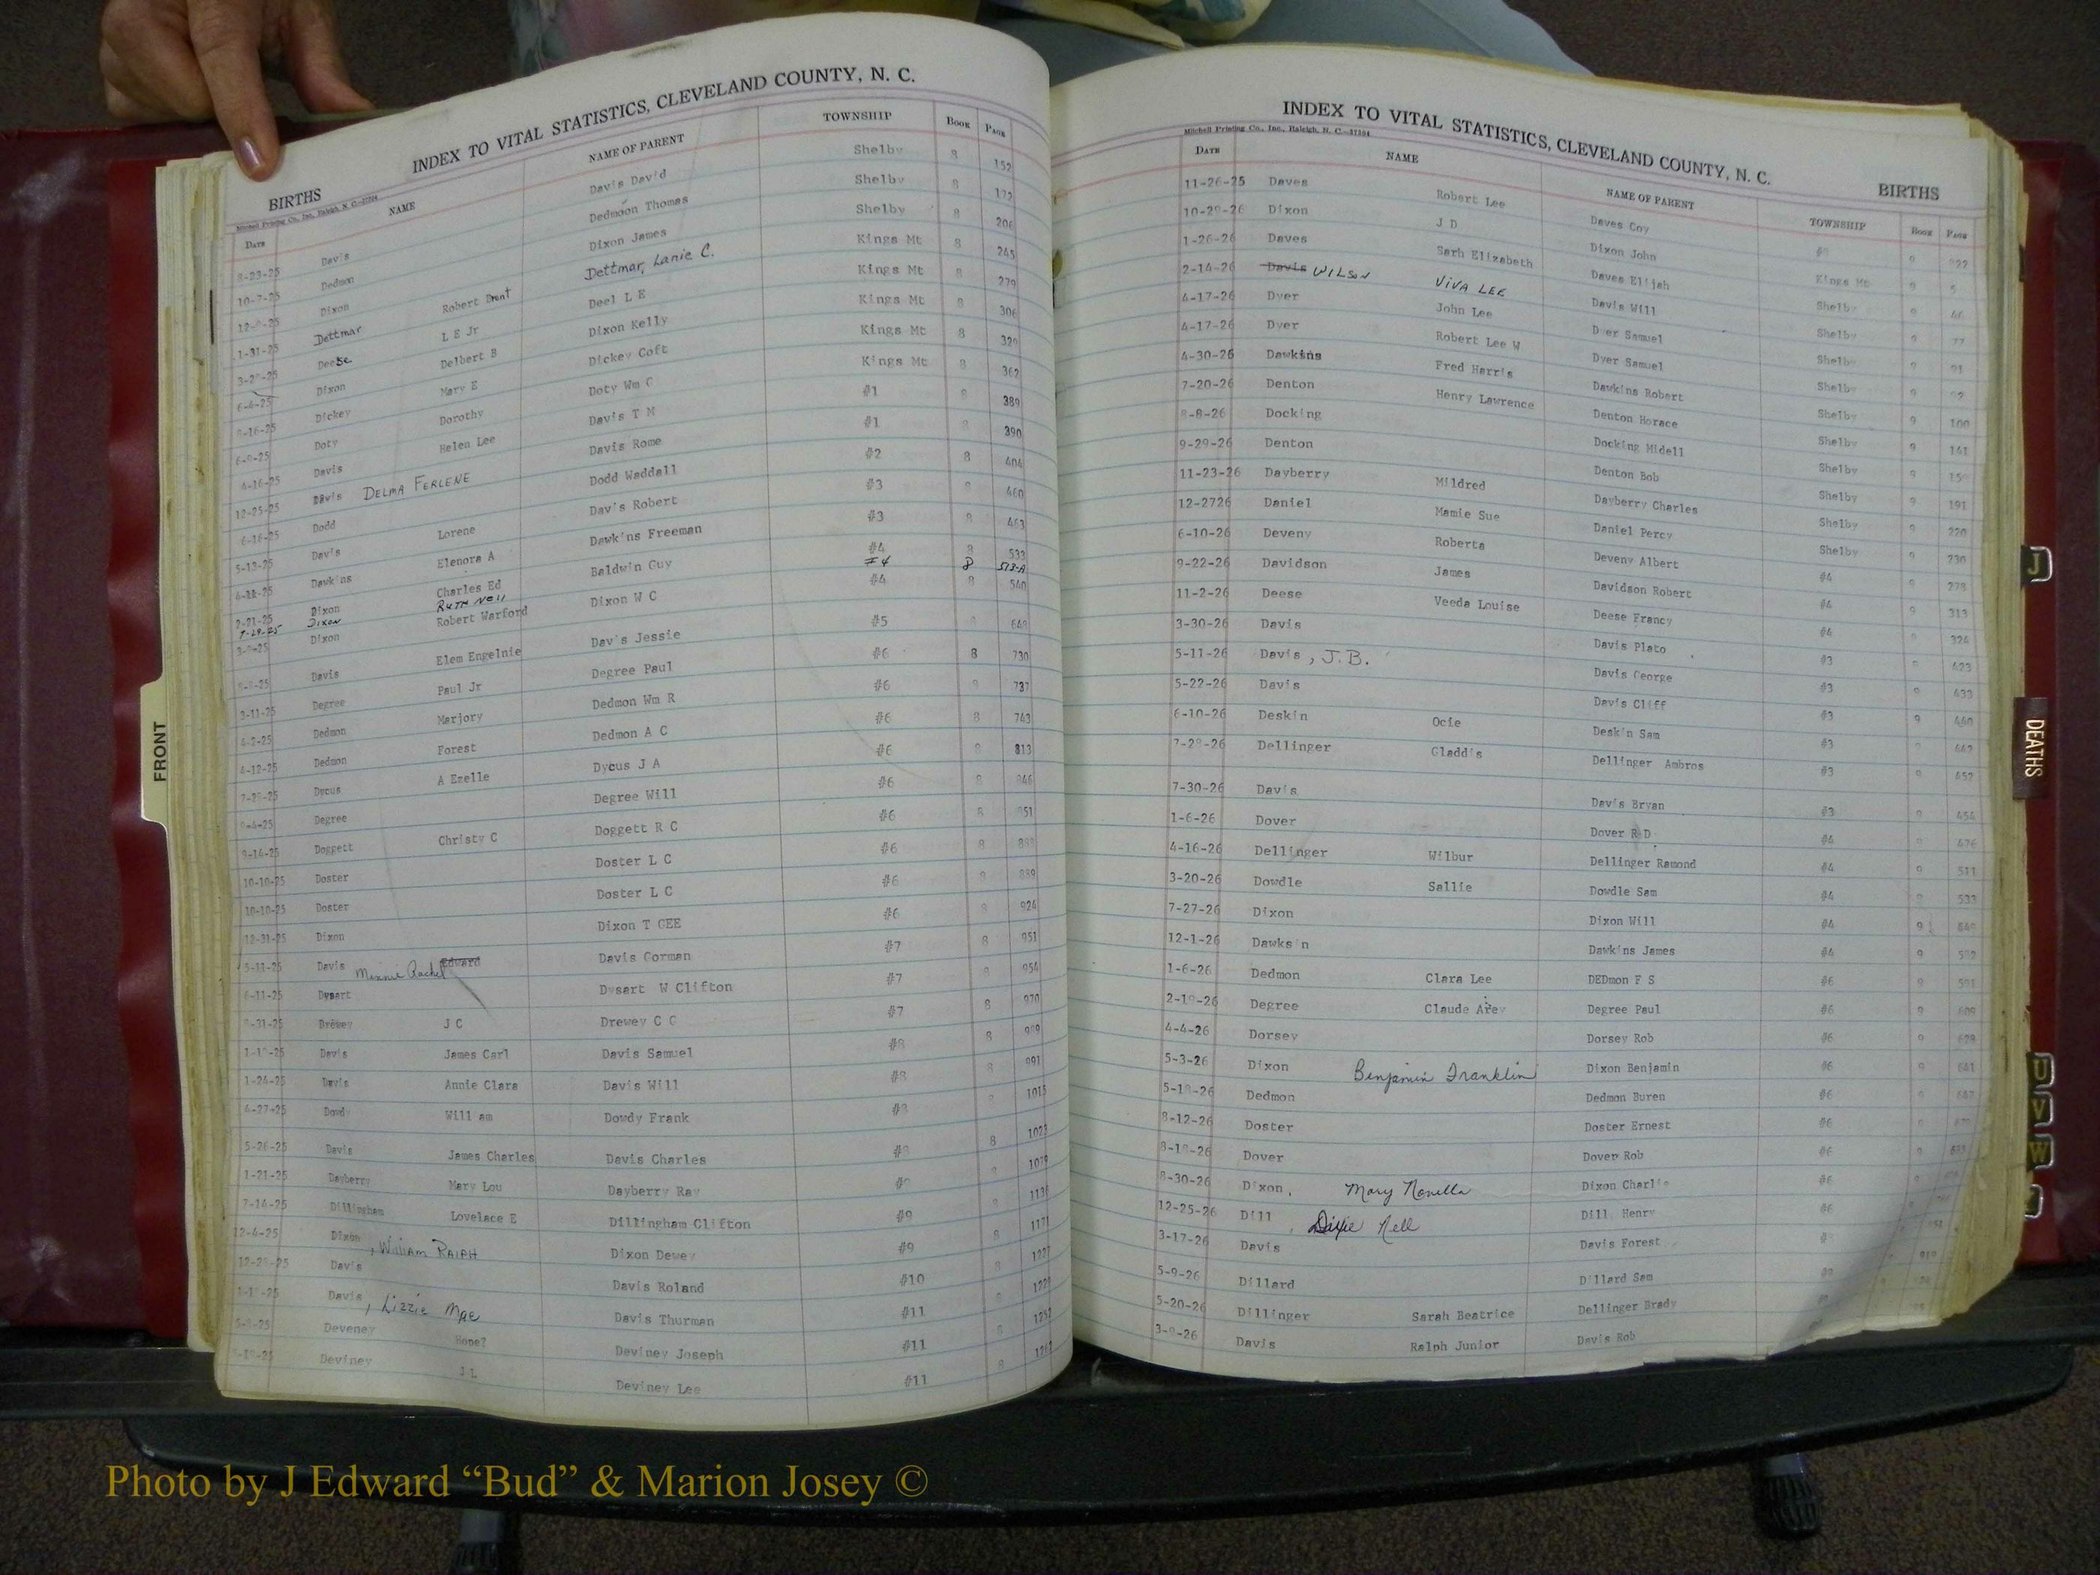 INDEX TO VITAL STATISTICS, CLEVELAND COUNTY, N. C.
BIRTHS
Mitchell Printing Co., Inc., Raleigh, N. C.
DATE NAME NAME OF PARENT TOWNSHIP BOOK PAGE
8-23-25 Davis Davis David Shelby 8 152
10-7-25 Dedmon Dedmon Thomas Shelby 8 172
Dixon Dixon James Shelby 8 206
1-31-25 Dettmar Robert Brent Dettmar, Lanie C. Kings Mt 8 245
Deese L E Jr Deel L E Kings Mt 8 279
6-4-25 Dixon Delbert B Dixon Kelly Kings Mt 8 306
8-16-25 Dickey Mary E Dickey Coft Kings Mt 8 329
6-9-25 Doty Dorothy Doty Wm C Kings Mt 8 362
4-16-25 Davis Helen Lee Davis T M #1 8 389
12-25-25 Davis DELMA FERLENE Davis Rome #1 8 390
6-16-25 Dodd Dodd Waddall #2 8 404
5-13-25 Davis Lorene Davis Robert #3 8 460
Dawkins Elenora A Dawkins Freeman #3 8 463
2-21-25 Dixon Charles Ed Baldwin Guy #4 8 533
7-29-25 Dixon RUTH NELL #4 8 513-A
Dixon Robert Warford Dixon W C #4 8 540
Davis Elem Engelnie Davis Jessie #5 649
3-11-25 Degree Paul Jr Degree Paul #6 8 730
4-2-25 Dedmon Marjory Dedmon Wm R #6 8 737
4-12-25 Dedmon Forest Dedmon A C #6 8 743
Dycus A Ezelle Dycus J A #6 8 813
Degree Degree Will #6 8 846
9-14-25 Doggett Christy C Doggett R C #6 8 851
10-10-25 Doster Doster L C #6 8
10-10-25 Doster Doster L C #6 8 889
12-31-25 Dixon Dixon T GEE #6 8 924
5-11-25 Davis Minnie Rachel Edward Davis Gorman #7 8 951
6-11-25 Dysart Dysart W Clifton #7 8 954
8-31-25 Drewey J C Drewey C C #7 8 970
Davis James Carl Davis Samuel #8 8 989
1-24-25 Davis Annie Clara Davis Will #8 8 991
4-27-25 Dowdy Will am Dowdy Frank #8 1015
5-26-25 Davis James Charles Davis Charles 8 1023
1-21-25 Dayberry Mary Lou Dayberry Ray
7-14-25 Dillingham Lovelace E Dillingham Clifton #9
12-4-25 Dixon, William RALPH Dixon Dewey #9 8 1171
Davis Davis Roland #10 8 1227
Davis, Lizzie Mae Davis Thurman #11
Deveney Hope? Deviney Joseph #11 8 1252
Deviney J L Deviney Lee #11 8
FRONT
INDEX TO VITAL STATISTICS, CLEVELAND COUNTY, N. C.
BIRTHS
Mitchell Printing Co., Inc., Raleigh, N. C.
DATE NAME NAME OF PARENT TOWNSHIP BOOK PAGE
11-26-25 Daves Robert Lee Daves Coy 9
10-29-26 Dixon J D Dixon John Kings Mt 9 5
1-26-26 Daves Sarh Elizabeth Daves Elijah Shelby 9
2-14-26 Davis WILSON VIVA LEE Davis Will Shelby 9 77
4-17-26 Dyer John Lee Dyer Samuel Shelby 9 91
4-17-26 Dyer Robert Lee W Dyer Samuel Shelby 9 92
4-30-26 Dawkins Fred Harris Dawkins Robert Shelby 9 100
7-20-26 Denton Henry Lawrence Denton Horace Shelby 9 141
8-8-26 Docking Docking Midell Shelby 9
9-29-26 Denton Denton Bob Shelby 9 191
11-23-26 Dayberry Mildred Dayberry Charles Shelby 9 220
12-2726 Daniel Mamie Sue Daniel Percy Shelby 9 230
6-10-26 Deveny Roberta Deveny Albert #4 9 278
9-22-26 Davidson James Davidson Robert #4 9 313
11-2-26 Deese Veeda Louise Deese Francy #4 9 324
3-30-26 Davis Davis Plato #3 9 423
5-11-26 Davis, J.B. Davis George #3 9 433
5-22-26 Davis Davis Cliff #3 9 440
6-10-26 Deskin Ocie Desk'n Sam #3 9 442
7-28-26 Dellinger Gladd's Dellinger Ambros #3 9 452
7-30-26 Davis Davis Bryan #3 9 454
1-6-26 Dover Dover R D #4 9 476
4-16-26 Dellinger Wilbur Dellinger Ramond #4 9 511
3-20-26 Dowdle Sallie Dowdle Sam #4 9 533
7-27-26 Dixon Dixon Will #4 9
12-1-26 Dawks n Dawk'ns James #4 9
1-6-26 Dedmon Clara Lee DEDmon F S #6 9 591
2-19-26 Degree Claude Arey Degree Paul #6 9 609
4-4-26 Dorsey Dorsey Rob #6 9 629
5-3-26 Dixon Benjamin Franklin Dixon Benjamin #6 9 641
5-18-26 Dedmon Dedmon Buren #6 9
8-12-26 Doster Doster Ernest #6 9
8-18-26 Dover Dover Rob #6 9
8-30-26 Dixon, Mary Novella Dixon Charlie #6
12-25-26 Dill, Dixie Nell Dill Henry #6
3-17-26 Davis Davis Forest
5-9-26 Dillard Dillard Sam
5-20-26 Dillinger Sarah Beatrice Dellinger Brady
3-9-26 Davis Ralph Junior Davis Rob
J
DEATHS
U
V
W
Photo by J Edward “Bud” & Marion Josey ©